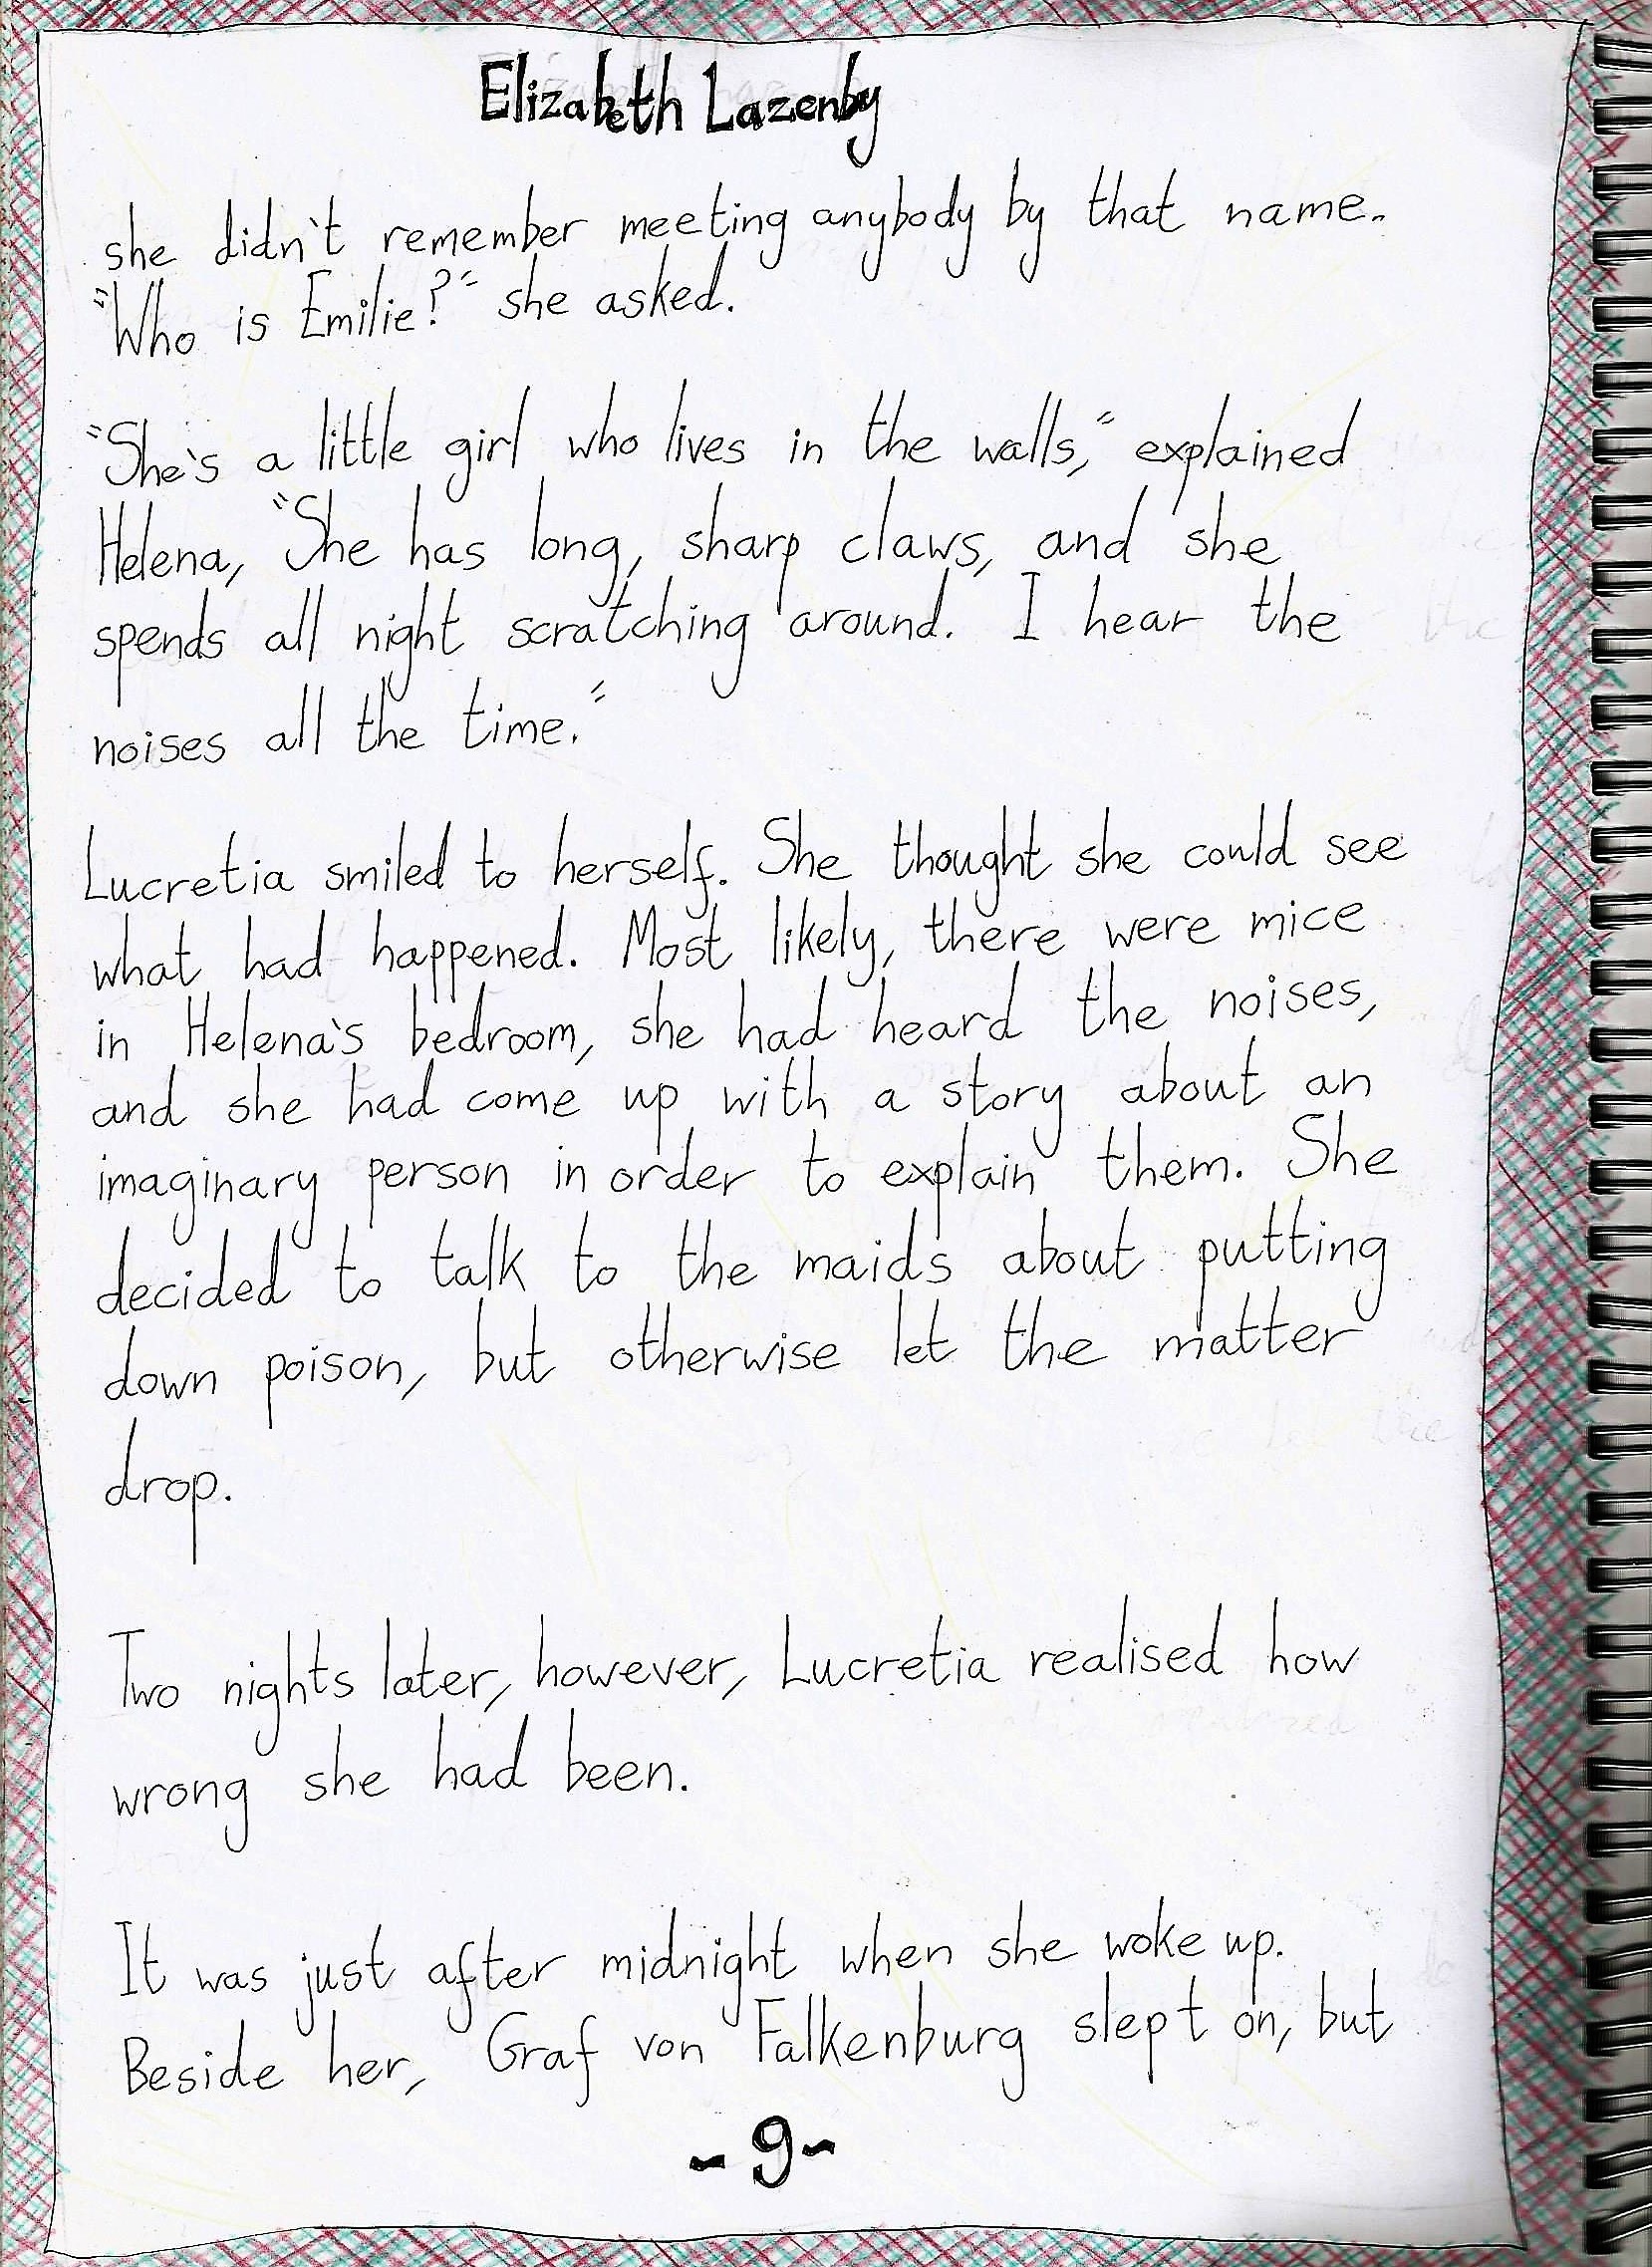 Elizabeth Lazenby
she didn't remember meeting anybody by that name.
"Who is Emilie?" she asked.
"She's a little girl who lives in the walls," explained
Helena, "She has long, sharp claws, and she
spends all night scratching around. I hear the
noises all the time."
Lucretia smiled to herself. She thought she could see
what had happened. Most likely, there were mice
in Helena's bedroom, she had heard the noises,
and she had come up with a story about an
imaginary person in order to explain them. She
decided to talk to the maids about putting
down poison, but otherwise let the matter
drop.
Two nights later, however, Lucretia realised how
wrong she had been.
It was just after midnight when she woke up.
Beside her, Graf von Falkenburg slept on, but
-9-